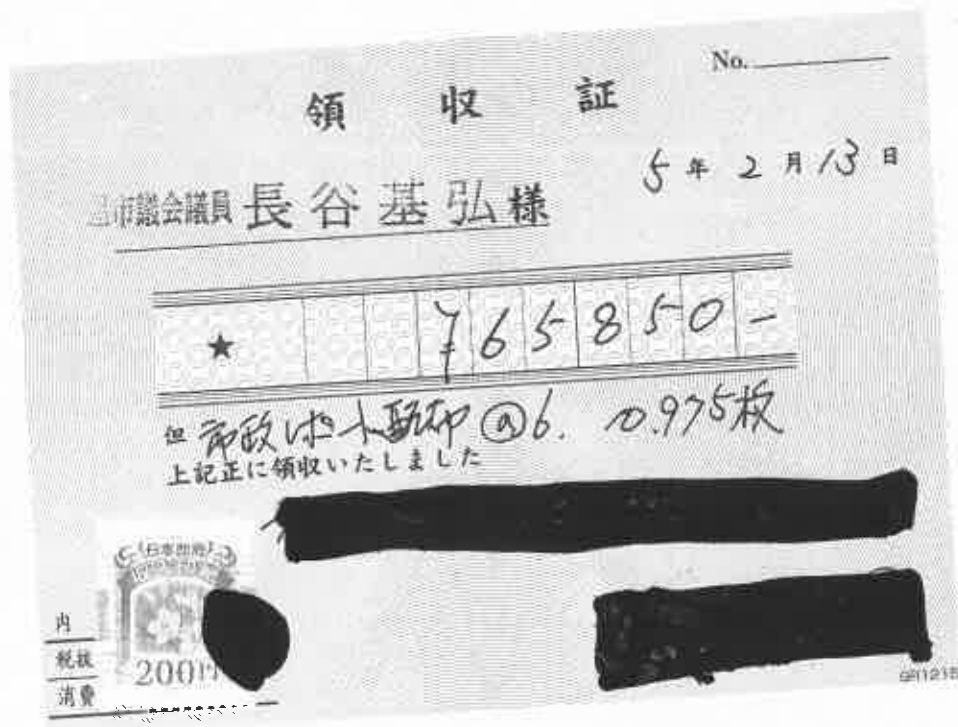 No.
領収証
5年2月13日
市議会議員 長谷基弘様
★ ¥65850-
但 市政レポート配布 @6. 10.975枚
上記正に領収いたしました
日本政府
200円
内
税抜
消費